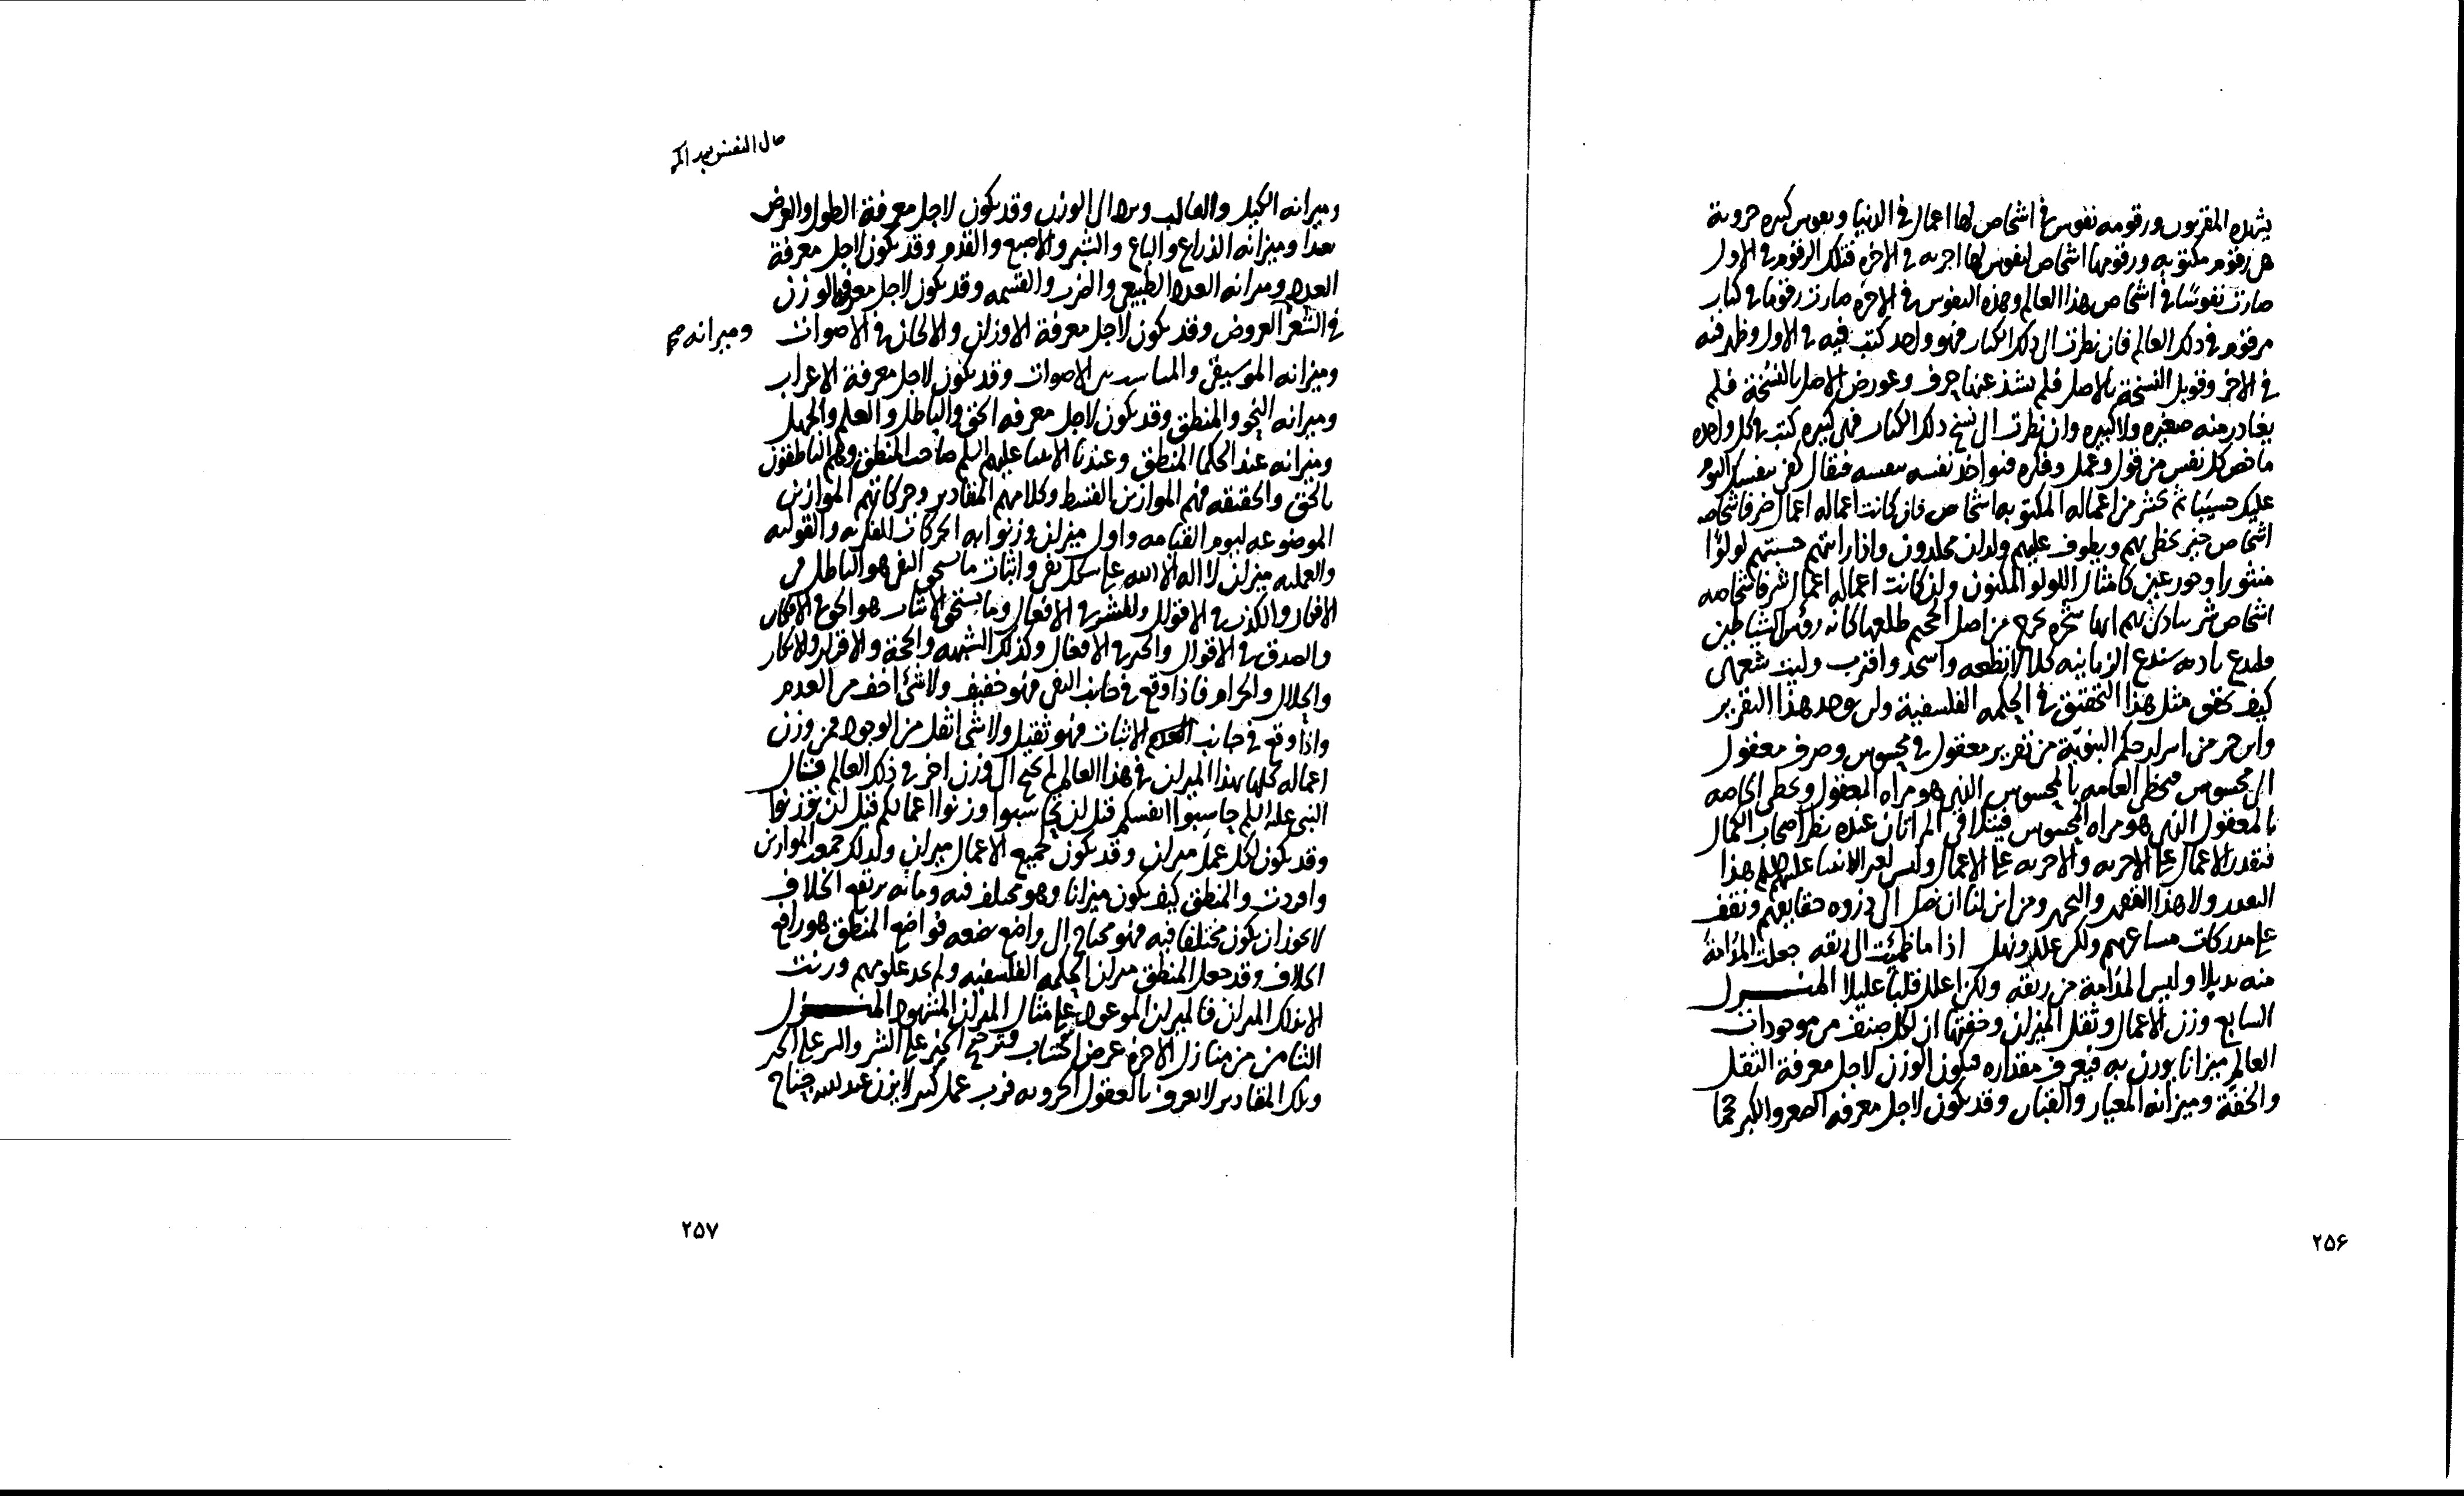 يشهده المقربون ورقومه نفوس في اشخاص لها اعمال في الدنيا ونفوس كثيره جزوية
هي رقوم مكتوبه ورقومها اشخاص لنفوس لها اجزيه في الاخره فتلك الرقوم في الاول
صارت نفوسا في اشخاص هذا العالم وهذه النفوس في الاخره صارت رقوما في كتاب
مرقوم في ذلك العالم فان نظرت الى ذلك الكتاب فهو واحد كتب فيه في الاول وظهر منه
في الاخر وقوبل النسخة بالاصل فلم يشذ عنها حرف وعورض الاصل بالنسخة فلم
يغادر منه صغيره ولا كبيره وان نظرت الى نسخ ذلك الكتاب فهى كثيره كتب في كل واحده
ما خص كل نفس من قول وعمل وفكره فيواخذ نفسه بنفسه فيقال كفى بنفسك اليوم
عليك حسيبا ثم يحشر من اعماله المكتوبه اشخاص فان كانت اعماله اعمال خير فاشخاصه
اشخاص خير يحظى بهم ويطوف عليهم ولدان مخلدون واذا رايتهم حسبتهم لولوا
منثورا وحور عين كامثال اللولو المكنون وان كانت اعماله اعمال شر فاشخاصه
اشخاص شر يتاذى بهم انها شجره تخرج من اصل الجحيم طلعها كانه روس الشياطين
فليدع ناديه سندع الزبانيه كلا لا تطعه واسجد واقترب وليت شعرى
كيف تحقق مثل هذا التحقيق في الحكمه الفلسفية ولن يوجد هذا التقرير
واين هي من اسرار حكم النبوية من تقرير معقول في محسوس وصرف معقول
الى محسوس فيحظى العامه بالمحسوس الذى هو مراه المعقول ويحظى الخاصه
بالمعقول الذى هو مراه المحسوس فيتلاقى المراتان عنده نظر اصحاب الكمال
فتقدر الاعمال على الاجزيه والاجزيه على الاعمال وليس لغير الانبيا عليهم السلم هذا
التقدير ولا هذا القصد والنهج ومن اين لنا ان نصل الى ذروه حقايقهم ونقف
على مدركات مساعيهم ولكن علل ونهل اذا ما ظمئت الى ريقه جعلت المدامة
منه بديلا وليس المدامة من ريقه ولكن اعلل قلبا عليلا المنزل
السابع وزن الاعمال وثقل الميزان وخفتها ان لكل صنف من موجودات
العالم ميزانا يوزن به فيعرف مقداره فيكون الوزن لاجل معرفة الثقل
والخفة وميزانه المعيار والقبان وقد يكون لاجل معرفه الصغر والكبر حجما
حال النفس بعد
وميزانه الكيل والقالب الوزن وقد يكون لاجل معرفة الطول والعرض
بعدا وميزانه الذراع والباع والشبر والاصبع والقدم وقد يكون لاجل معرفة
العدد وميزانه العدد الطبيعى والضرب والقسمه وقد يكون لاجل معرفة الوزن
في الشعر العروض وقد يكون لاجل معرفة الاوزان والالحان في الاصوات وميزانه صح
وميزانه الموسيقى الاصوات وقد يكون لاجل معرفة الاعراب
وميزانه النحو والمنطق وقد يكون لاجل معرفه الحق والباطل والعلم والجهل
وميزانه عند الحكما المنطق وعندنا الانبيا عليهم السلم صاحب المنطق وهم الناطقون
بالحق والحقيقه فهم الموازين القسط وكلامهم المقادير وحركاتهم الموازين
الموضوعه ليوم القيامه واول ميزان وزنوا به الحركات الفكريه والقوليه
والعمليه ميزان لا اله الا الله على شكل نفى واثبات ما يستحق النفى هو الباطل في
الافكار والكذب في الاقوال والشر في الافعال وما يستحق الاثبات هو الحق في الافكار
والصدق في الاقوال والخير في الافعال وكذلك الشبهه والحجة والاقرار والانكار
والحلال والحرام فاذا وقع في جانب النفى فهو خفيف ولا شئ اخف من العدم
واذا وقع في جانب الاثبات فهو ثقيل ولا شئ اثقل من الوجود فمن وزن
اعماله كلها بهذا الميزان في هذا العالم لم يحتج الى وزن اخر في ذلك العالم فقال
النبى عليه السلم حاسبوا انفسكم قبل ان تحاسبوا وزنوا اعمالكم قبل ان توزنوا
وقد يكون لكل عمل ميزان وقد يكون لجميع الاعمال ميزان ولذلك جمعت الموازين
وافردت والمنطق كيف يكون ميزانا وهو مختلف فيه وما به يرتفع الخلاف
لا يجوز ان يكون مختلفا فيه فهو محتاج الى واضع يضعه فواضع المنطق هو رافع
الخلاف وقد جعل المنطق ميزان الحكمه الفلسفيه ولم نجد علومهم وزنت
الا بذلك الميزان فالميزان الموعود على مثال الميزان المشهود المنزل
الثامن من منازل الاخرة عرض الحساب وترجيح الخير على الشر والشر على الخير
وتلك المقادير لا تعرف بالعقول الجزويه فرب عمل كبير لا يزن عند الله جناح
٢٥٧
٢٥۶